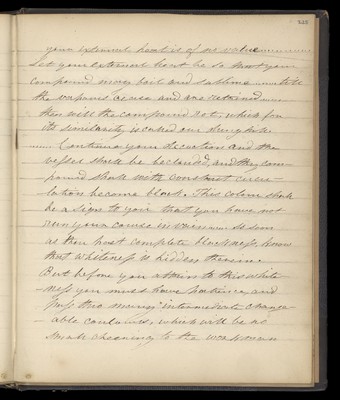 your external heat is of no value..........
Let your external heat be so that your
compound may boil and sublime ..... till
the vapours cease and are retained .....
then will the compound rot, which for
its similarity is called our dunghill
..... Continue your decoction and the
vessel shall be beclouded, and thy com-
pound shall with constant circu-
lation become black. This colour shall
be a sign to you that you have not
run your course in vain. As soon
as thou hast complete blackness, know
that whiteness is hidden therein.
But before you attain to this white-
ness you must have patience, and
pass thro many intermediate change-
able colours, which will be no
small cheering to the workman